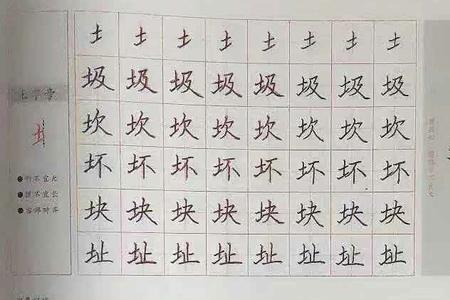 土 土 土 土 土 土 土 土
圾 圾 圾 圾 圾 圾 圾 圾
坎 坎 坎 坎 坎 坎 坎 坎
坏 坏 坏 坏 坏 坏 坏 坏
块 块 块 块 块 块 块 块
址 址 址 址 址 址 址 址
土字旁